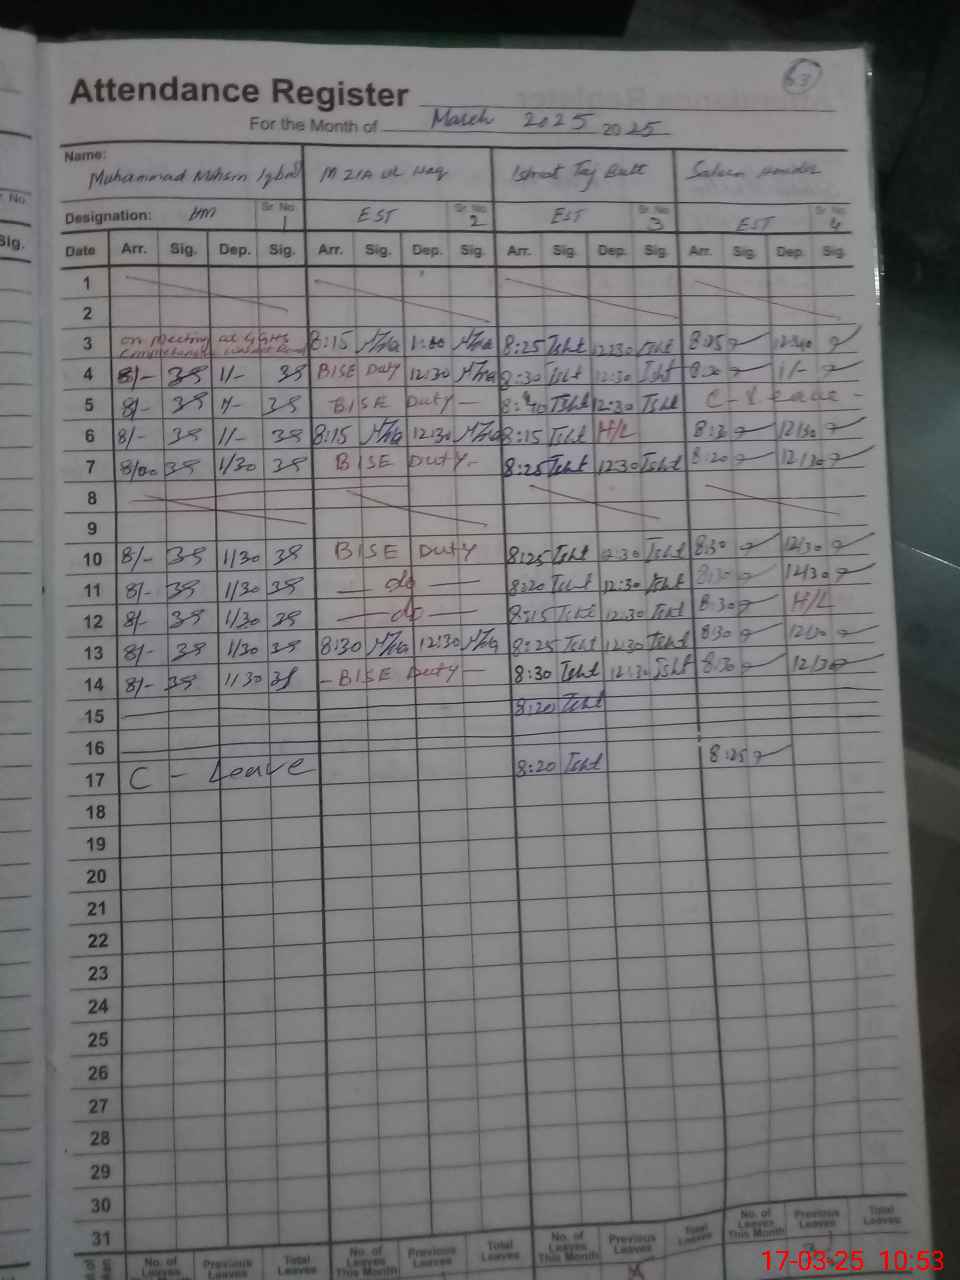 53
Attendance Register
For the Month of March 2025 2025
Name: Muhammad Mohsin Iqbal M ZIA UL Haq Ishrat Taj Butt Saleem Haider
Designation: HM Sr. No. 1 EST Sr. No. 2 EST Sr. No. 3 EST Sr. No. 4
Date Arr. Sig. Dep. Sig. Arr. Sig. Dep. Sig. Arr. Sig. Dep. Sig. Arr. Sig. Dep. Sig.
1
2
3 on meeting at GGHS 8:15 1:00 8:25 Isht 12:30 Isht 8:25 12:40
4 8/- 1/- BISE Duty 12:30 8:30 Isht 12:30 Isht 8:30 1/-
5 8/- 1/- BISE Duty - 8:40 Isht 12:30 Isht C - Leave -
6 8/- 1/- 8:15 12:30 8:15 Isht H/L 8:30 12/30
7 8/00 1/30 BISE Duty - 8:25 Isht 12:30 Isht 8:20 12/30
8
9
10 8/- 1/30 BISE Duty 8:25 Isht 12:30 Isht 8:30 12/30
11 8/- 1/30 — do — 8:20 Isht 12:30 Isht 8:30 12/30
12 8/- 1/30 — do — 8:15 Isht 12:30 Isht 8:30 H/L
13 8/- 1/30 8:30 12:30 8:25 Isht 12:30 Isht 8:30 12/30
14 8/- 1/30 - BISE Duty - 8:30 Isht 12:30 Isht 8:30 12/30
15 8:20 Isht
16
17 C - Leave 8:20 Isht 8:25
18
19
20
21
22
23
24
25
26
27
28
29
30
31
No. of Leaves Previous Leaves Total Leaves No. of Leaves This Month Previous Leaves Total Leaves No. of Leaves This Month Previous Leaves Total Leaves No. of Leaves This Month Previous Leaves Total Leaves
17-03-25 10:53